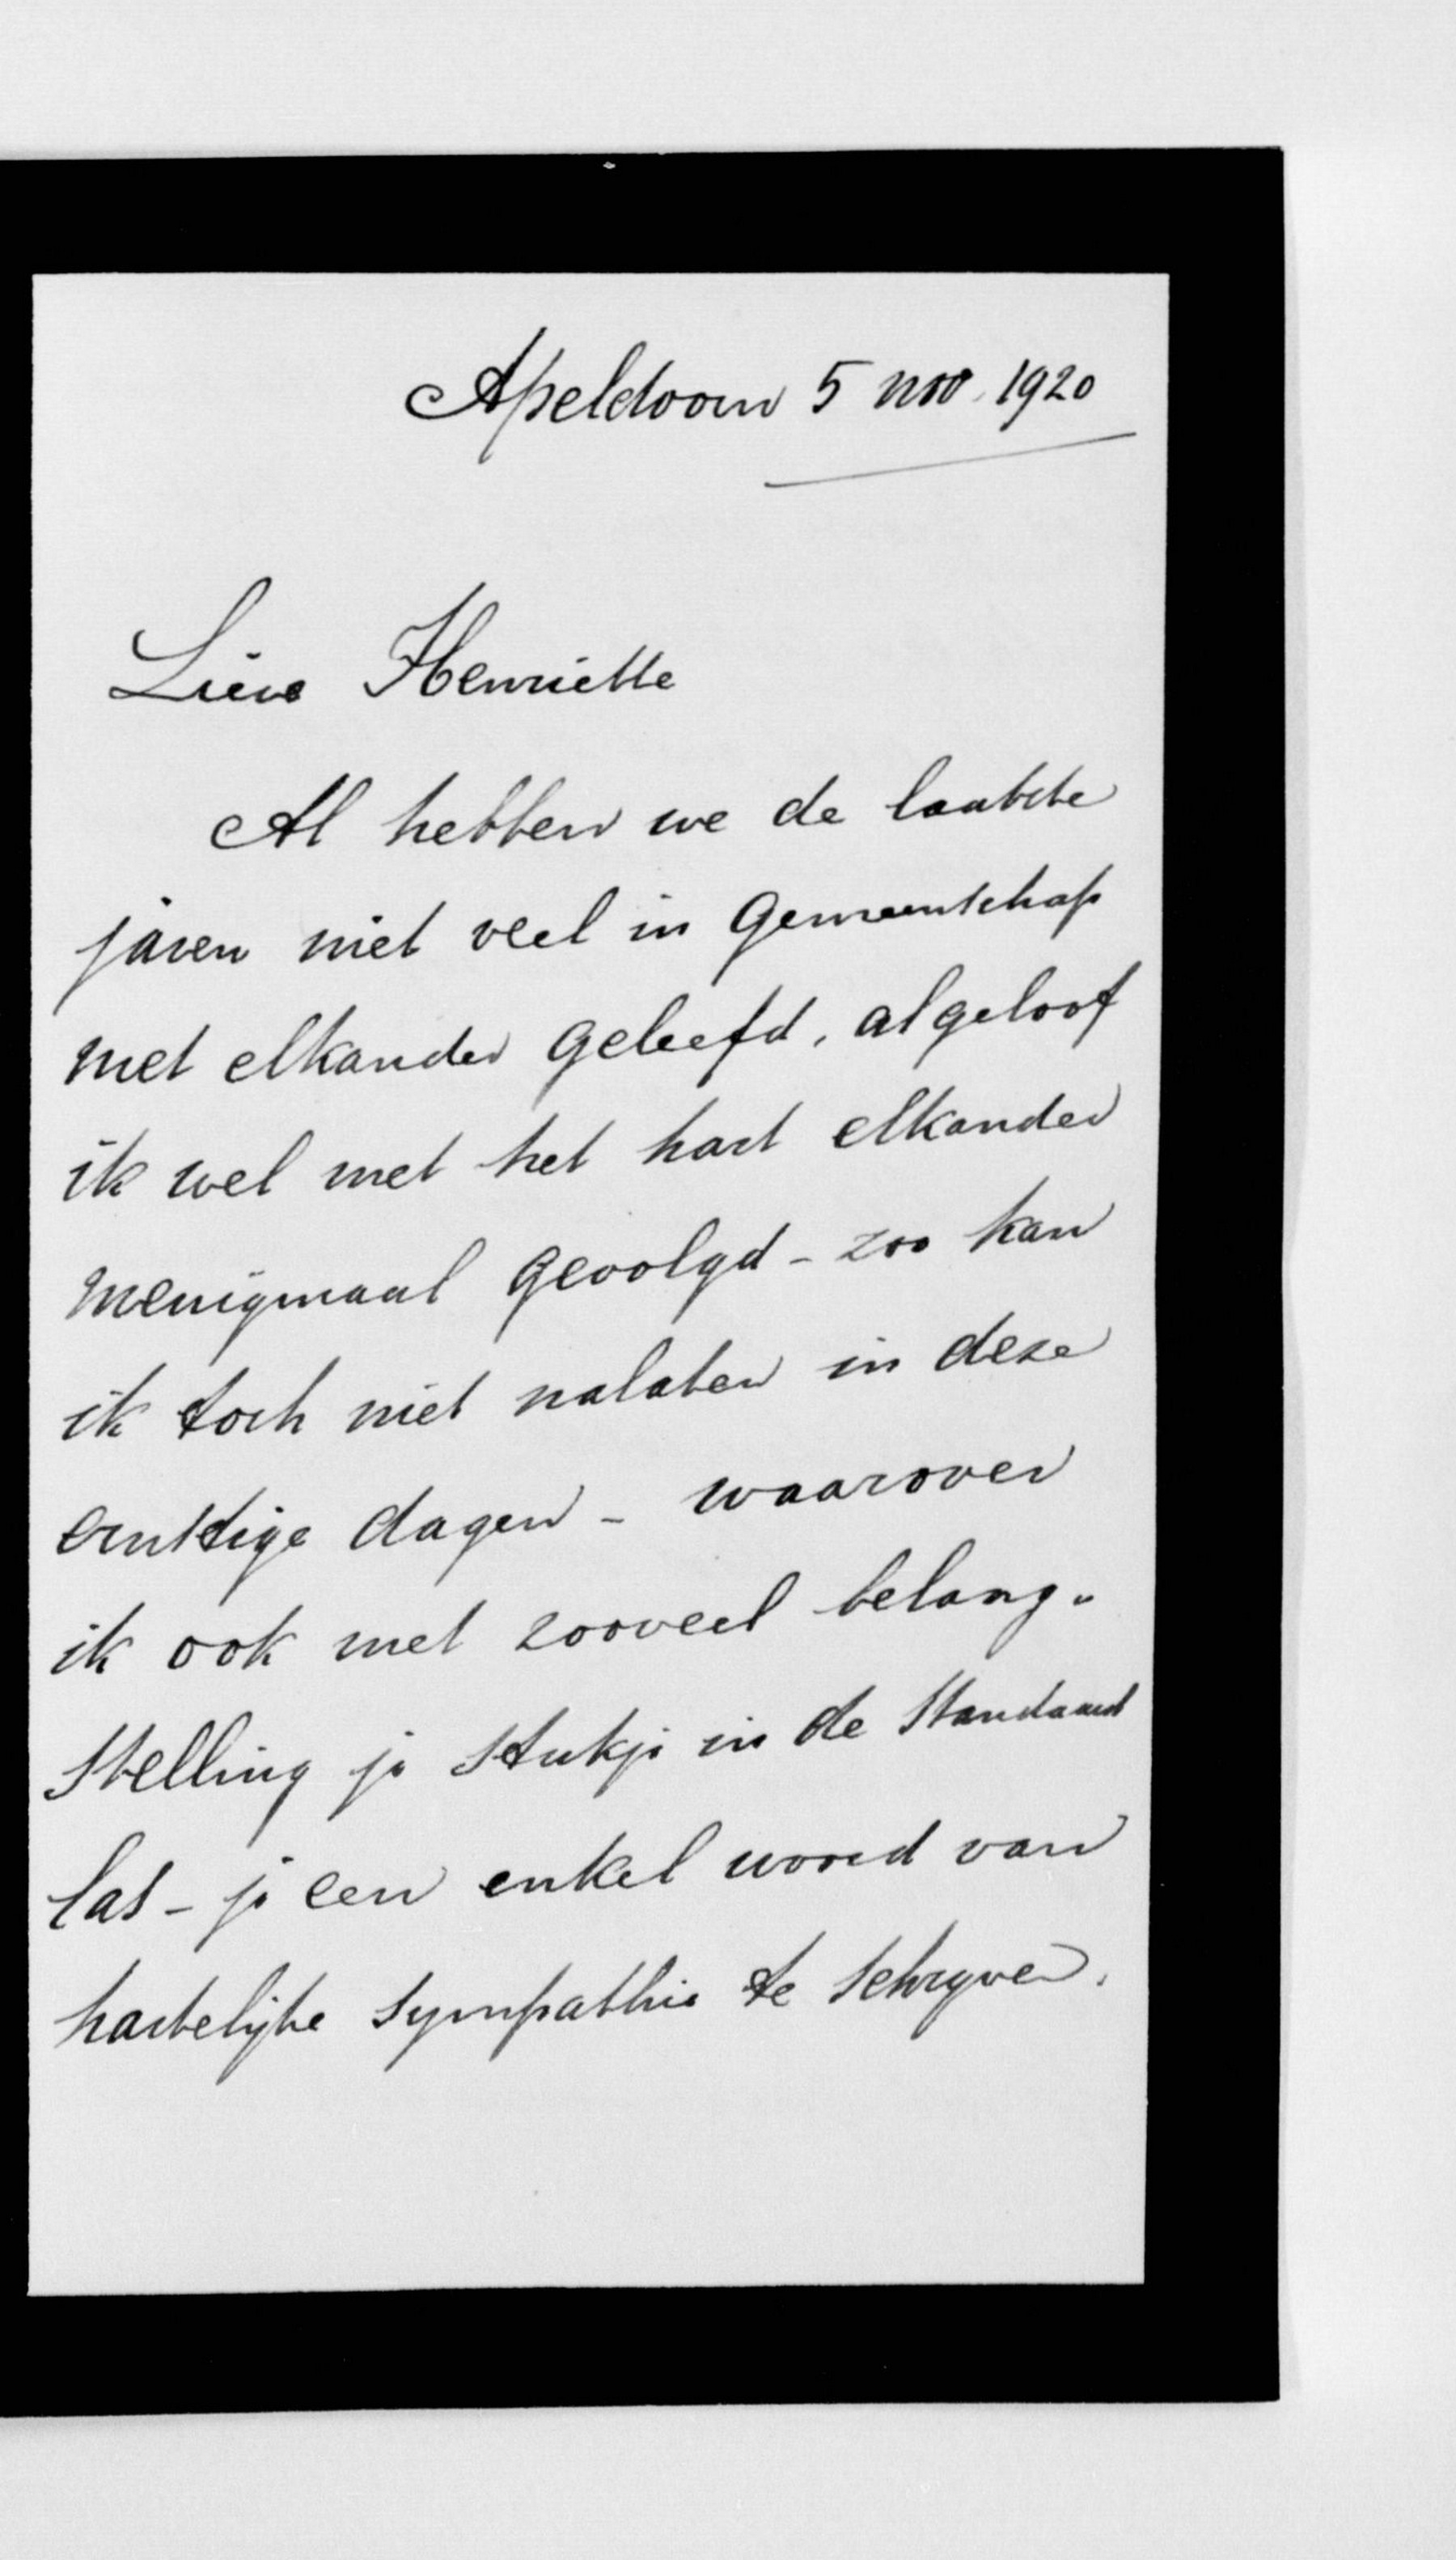 Apeldoorn 5 nov. 1920
Lieve Henriette
Al hebben we de laatste
jaren niet veel in gemeenschap
met elkander geleefd, al geloof
ik wel met het hart elkander
menigmaal gevolgd - zoo kan
ik toch niet nalaten in deze
ernstige dagen - waarover
ik ook met zooveel belang-
stelling je stukje in de Standaard
las - je een enkel woord van
hartelijke sympathie te schrijven.